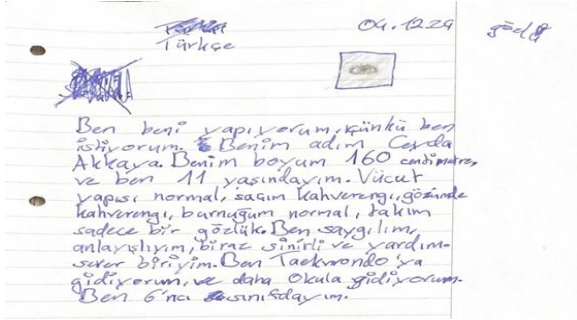 Türkçe
04.12.24
Ben beni yapıyorum, çünkü ben
istiyorum. Benim adım Ceyda
Akkaya. Benim boyum 160 centimetre,
ve ben 11 yasındayım. Vücut
yapısı normal, saçım kahverengi, gözümde
kahverengi, burnuğum normal, takım
sadece bir gözlük. Ben saygılım,
anlayışlıyım, biraz sinirli ve yardım-
sever biriyim. Ben Taekwondo'ya
gidiyorum, ve daha Okula gidiyorum.
Ben 6'ncı sınıfdayım.